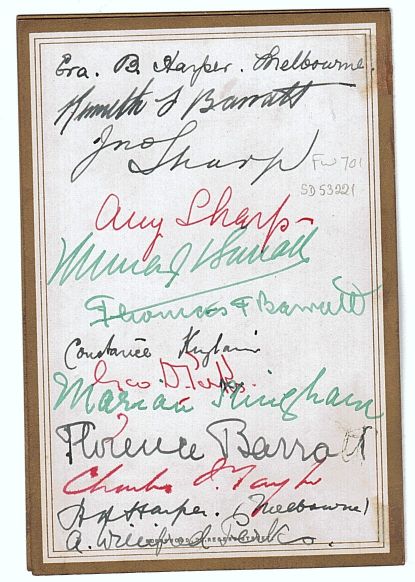 Era. B. Harper. Melbourne.
Kenneth J Barratt
Jno Sharp
FW 701
SD 53221
Amy Sharp
Barratt
Thomas F Barratt
Constance
Geo. D.
Marian Kingham
Florence Barratt
Charles J. Taylor
Harper. (Melbourne)
A. Winifred